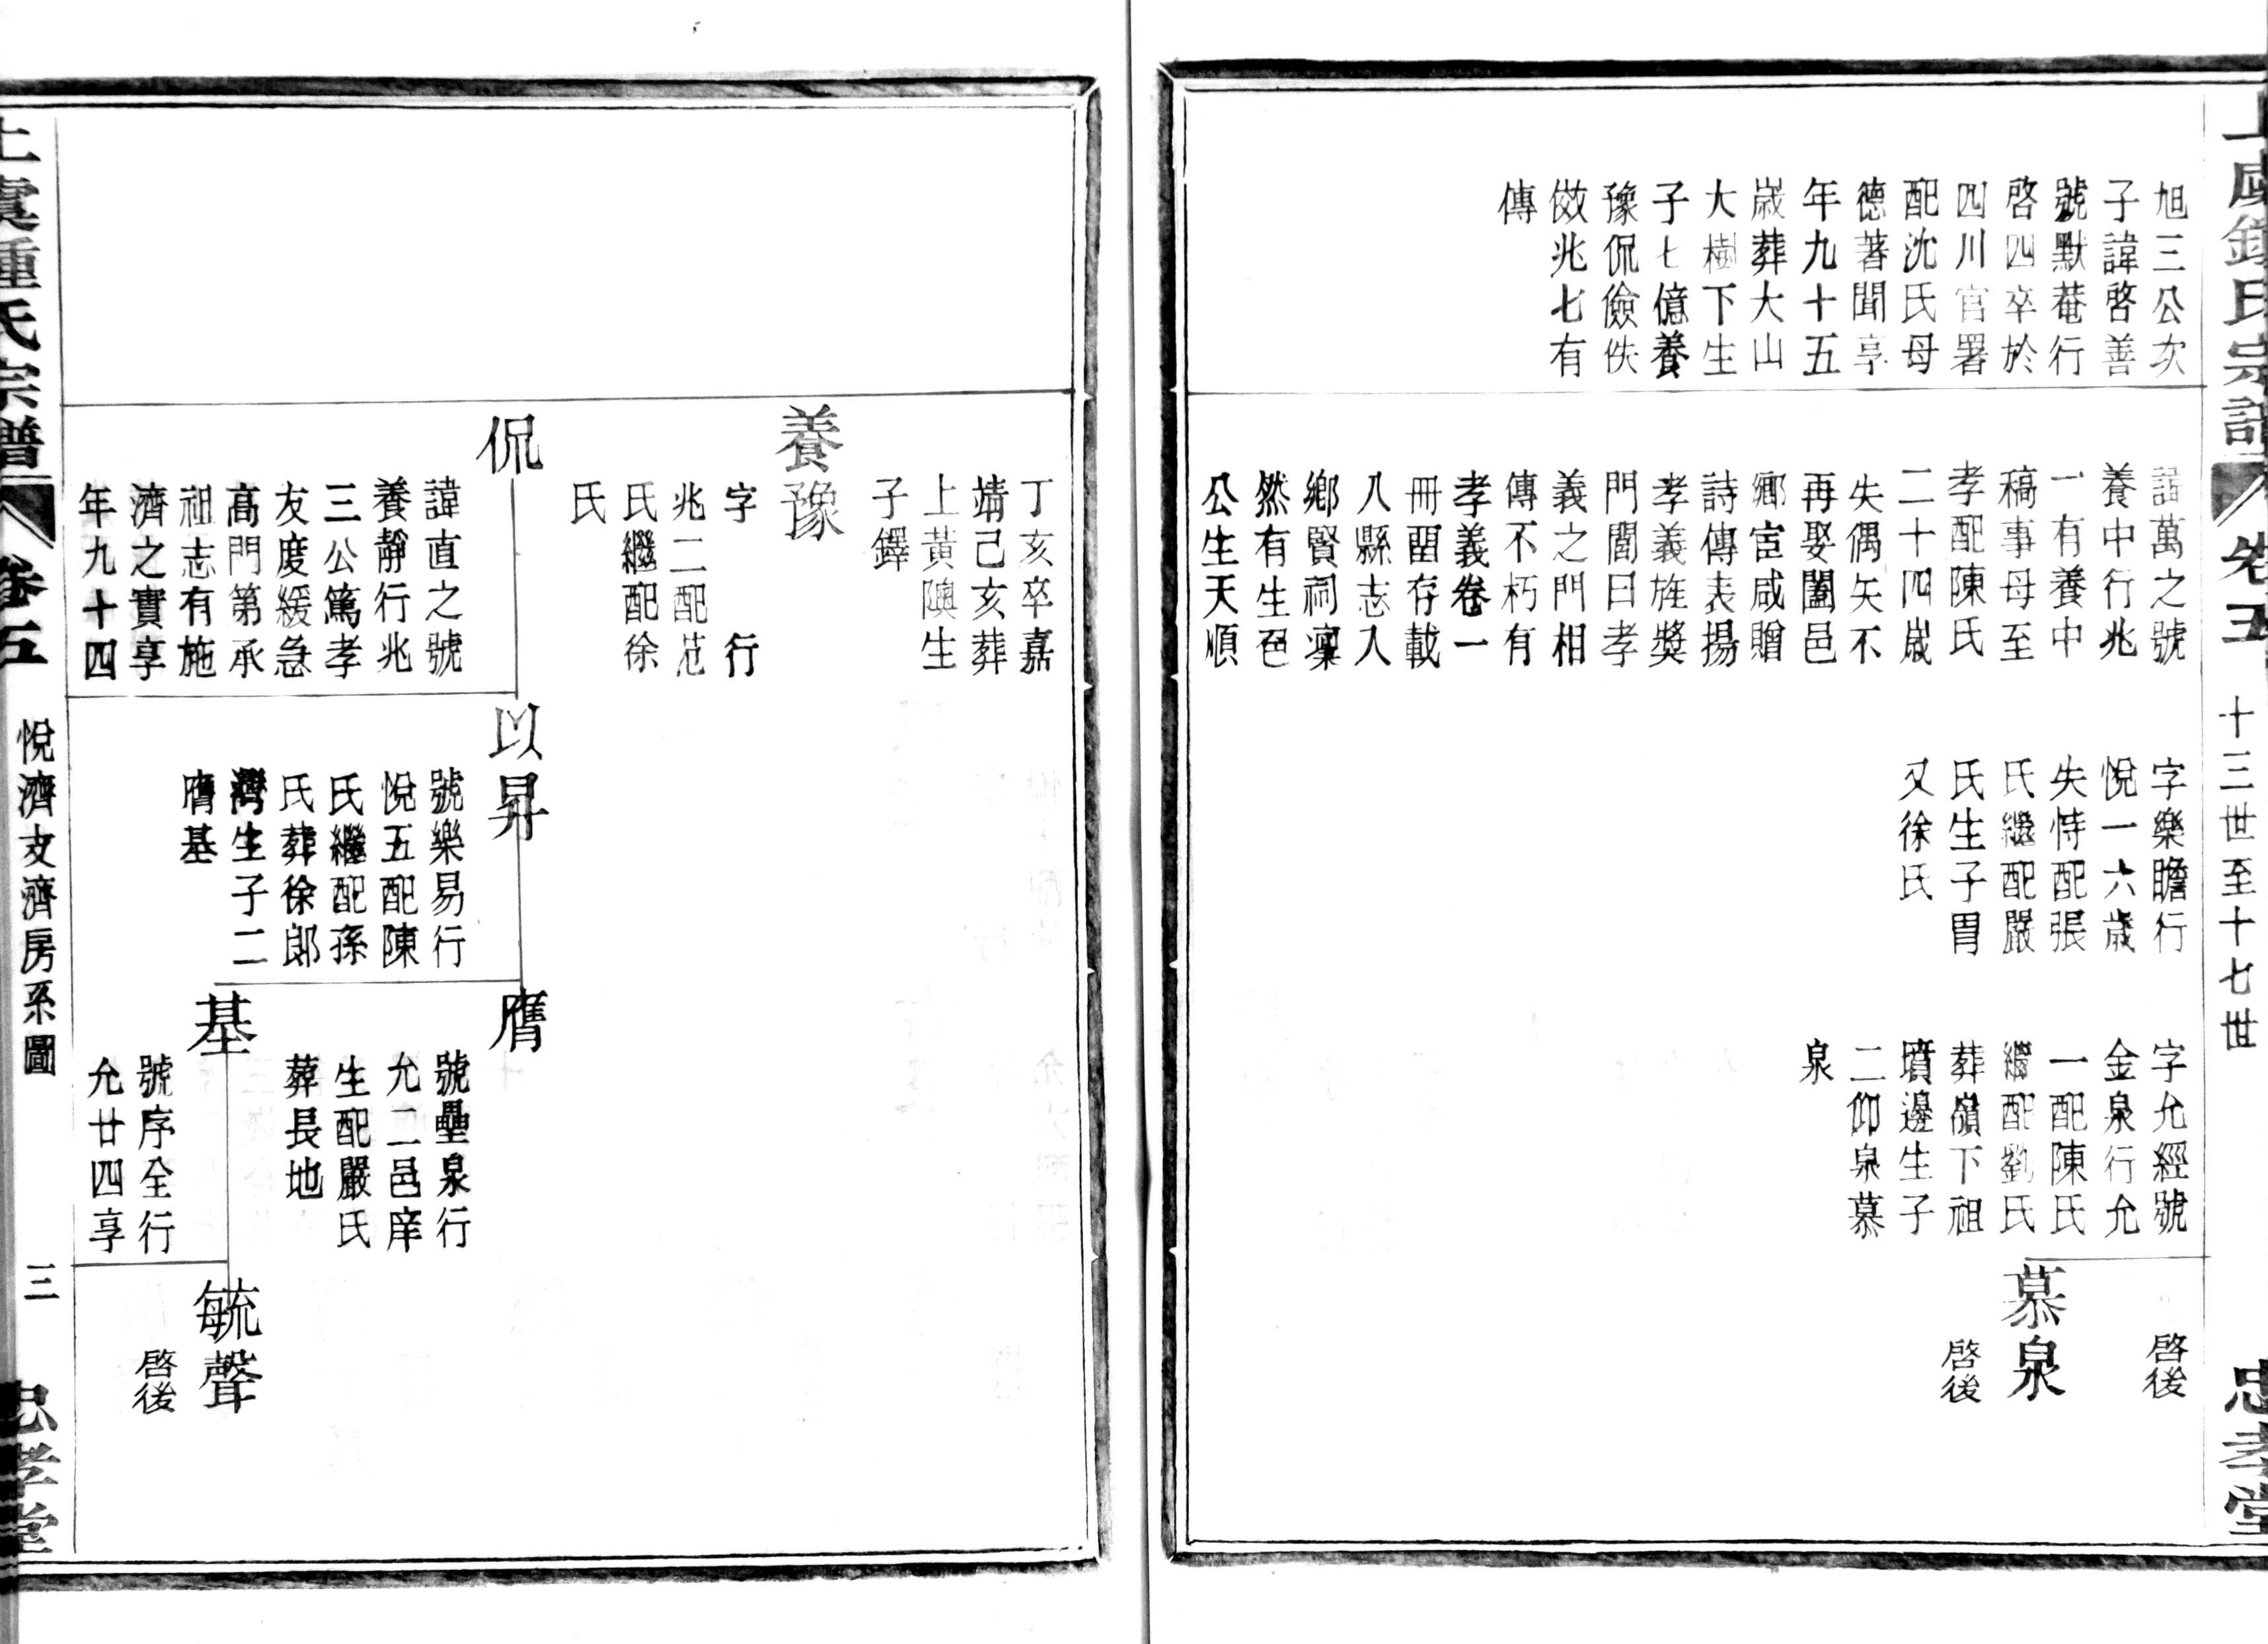 上虞鍾氏宗譜
卷五
十三世至十七世
忠孝堂
旭三公次
子諱啓善
號默菴行
啓四卒於
四川官署
配沈氏母
德著聞享
年九十五
歲葬大山
大樹下生
子七億養
豫侃儉佚
傚兆七有
傳
諱萬之號
養中行兆
一有養中
稿事母至
孝配陳氏
二十四歲
失偶矢不
再娶闔邑
鄉宦咸贈
詩傳表揚
孝義旌獎
門閭曰孝
義之門相
傳不朽有
孝義卷一
冊畱存載
入縣志入
鄉賢祠凜
然有生色
公生天順
字樂瞻行
悅一六歲
失恃配張
氏繼配嚴
氏生子胃
又徐氏
字允經號
金泉行允
一配陳氏
繼配劉氏
葬嶺下祖
墳邊生子
二仰泉慕
泉
啓後
慕泉
啓後
丁亥卒嘉
靖己亥葬
上黃隩生
子鐸
養豫
字 行
兆二配范
氏繼配徐
氏
侃
諱直之號
養靜行兆
三公篤孝
友度緩急
高門第承
祖志有施
濟之實享
年九十四
以昇
號樂易行
悅五配陳
氏繼配孫
氏葬徐郎
灣生子二
膺基
膺
號壘泉行
允二邑庠
生配嚴氏
葬長地
基
號序全行
允廿四享
毓聲
啓後
上虞鍾氏宗譜
卷五
悅濟支濟房系圖
三
忠孝堂